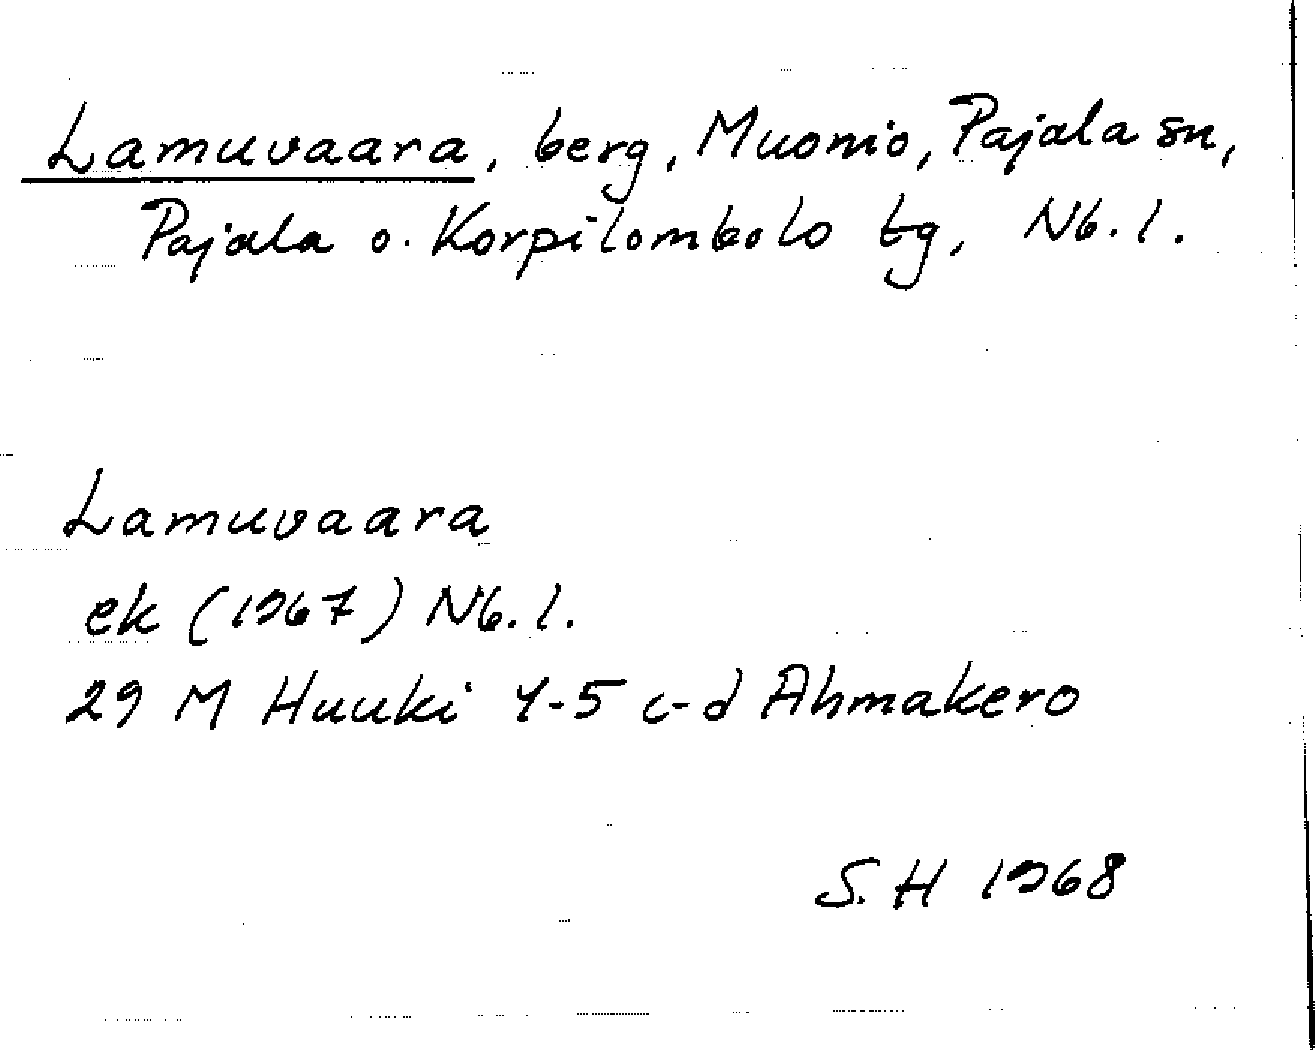 Lamuvaara, berg, Muonio, Pajala sn,
Pajala o. Korpilombolo tg, Nb. l.
Lamuvaara
ek (1967) Nb. l.
29 M Huuki 4-5 c-d Ahmakero
S.H 1968